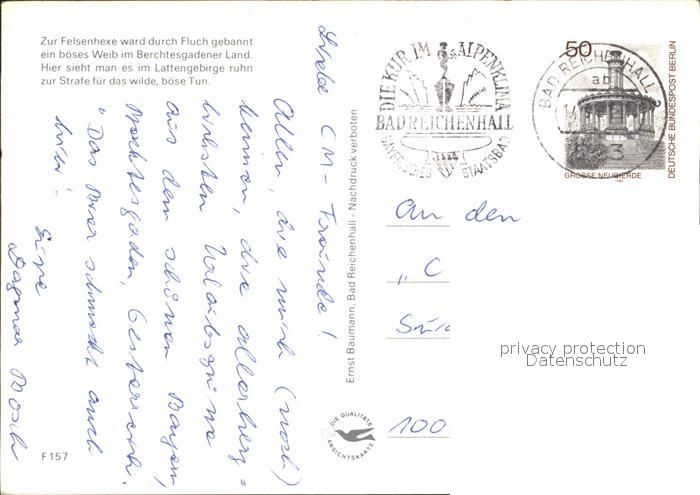 Zur Felsenhexe ward durch Fluch gebannt
ein böses Weib im Berchtesgadener Land.
Hier sieht man es im Lattengebirge ruhn
zur Strafe für das wilde, böse Tun.
Liebe CM-Freunde!
Allen, die mich (noch)
kennen, die allerherz=
lichsten Urlaubsgrüße
aus dem schönen Bayern,
Berchtesgaden, Oesterreich.
"Das Bier schmeckt auch
hier".
Eure
Dagmar
F 157
Ernst Baumann, Bad Reichenhall - Nachdruck verboten
DIE QUALITÄTS
ANSICHTSKARTE
DIE KUR IM ALPENKLIMA
BAD REICHENHALL
BAYERISCHES STAATSBAD
BAD REICHENHALL
ab
3
50
DEUTSCHE BUNDESPOST BERLIN
GROSSE NEUGIERDE
An den
„C
100
privacy protection
Datenschutz